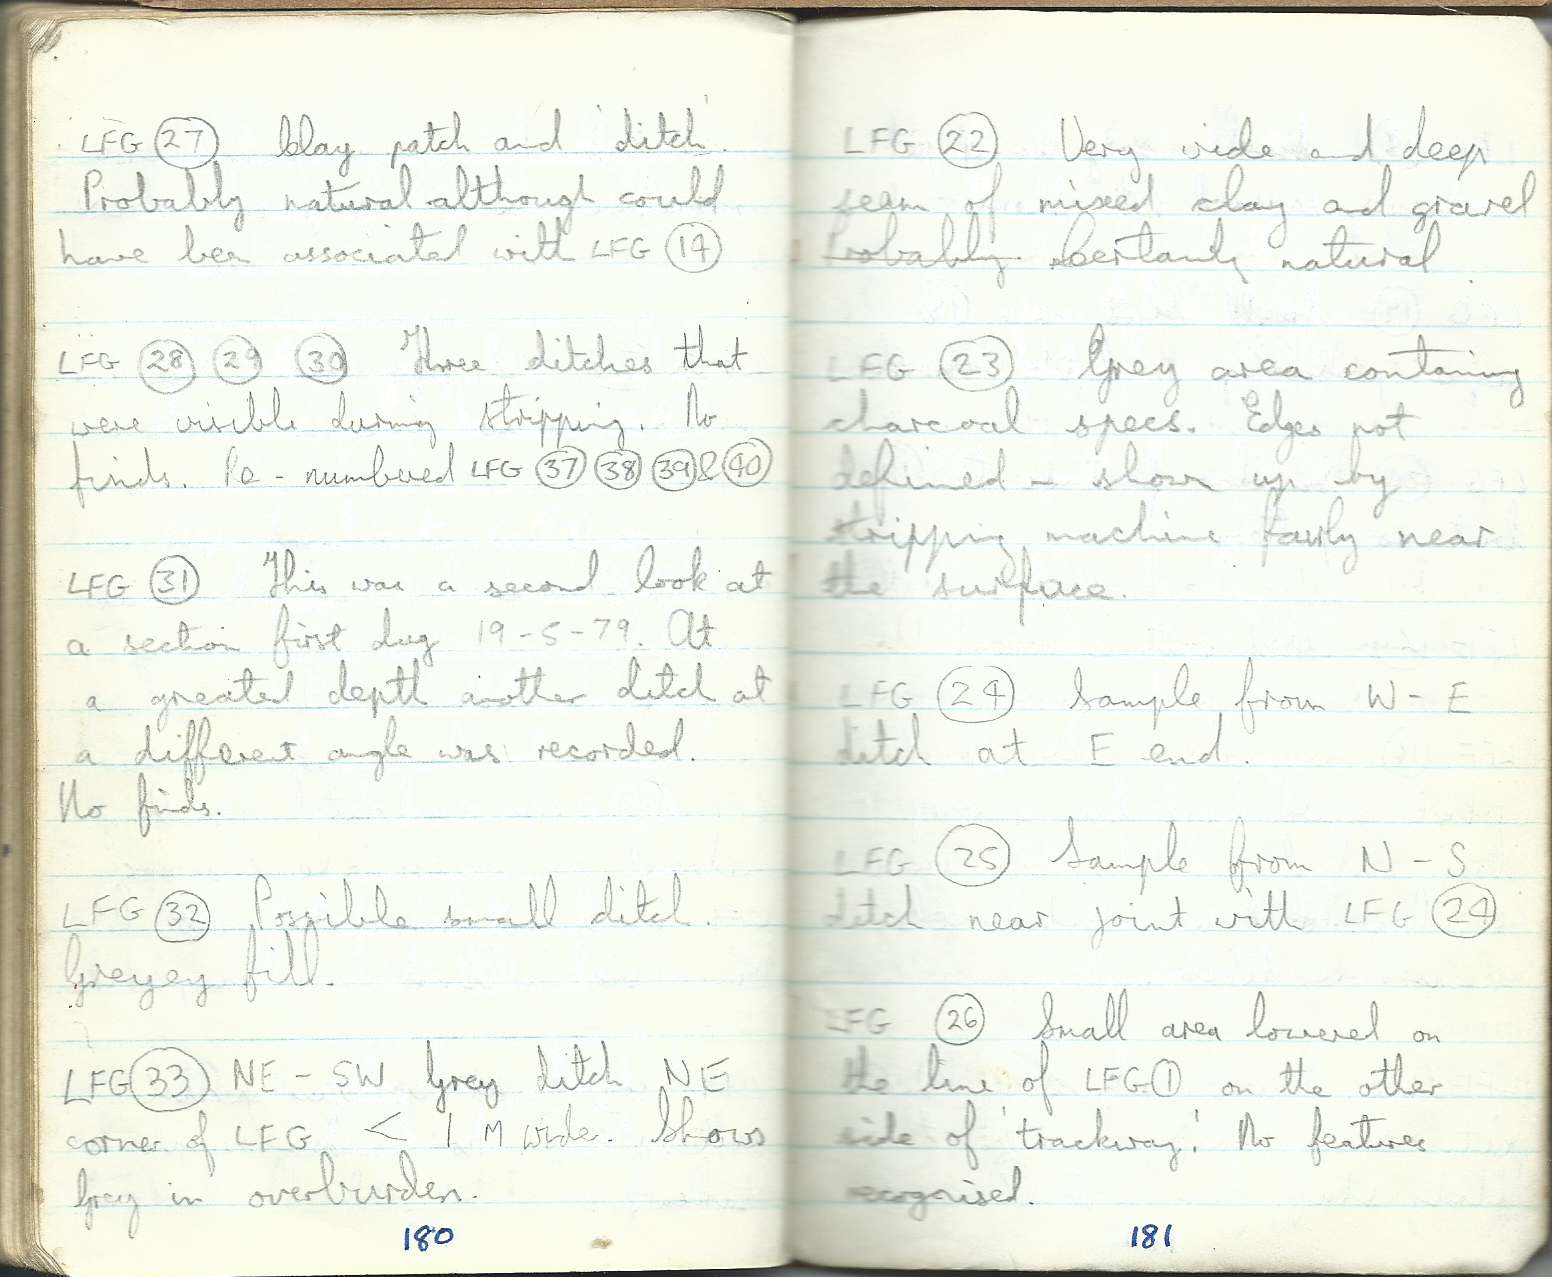 LFG (27) Clay patch and 'ditch'.
Probably natural although could
have been associated with LFG (19)
LFG (28) (29) (30) Three ditches that
were visible during stripping. No
finds. Re-numbered LFG (37) (38) (39) & (40)
LFG (31) This was a second look at
a section first dug 19-5-79. At
a greated depth another ditch at
a different angle was recorded.
No finds.
LFG (32) Possible small ditch.
Greyey fill.
LFG (33) NE - SW Grey ditch NE
corner of LFG < 1 M wide. Shows
Grey in overburden.
180
LFG (22) Very wide and deep
seam of mixed clay and gravel
Probably. Certainly natural
LFG (23) Grey area containing
charcoal specs. Edges not
defined - shown up by
stripping machine fairly near
the surface.
LFG (24) Sample from W - E
ditch at E end.
LFG (25) Sample from N - S
ditch near joint with LFG (24)
LFG (26) Small area lowered on
the line of LFG (1) on the other
side of 'trackway'. No features
recognised.
181